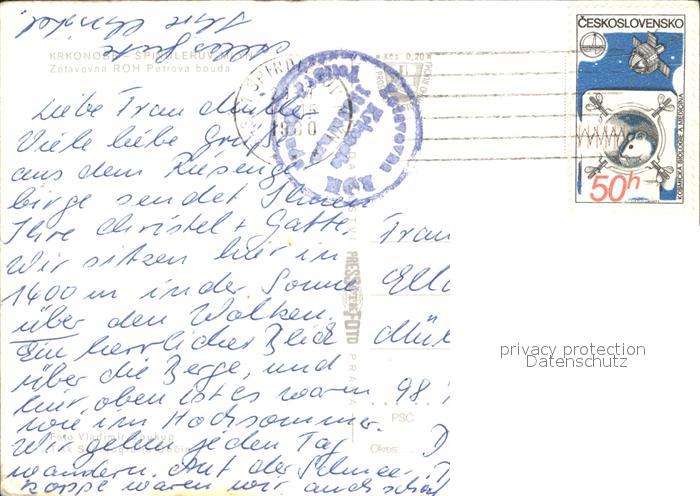 KRKONOŠE - ŠPINDLERŮV MLÝN
Zotavovna ROH Petrova bouda
Liebe Frau Müller
Viele liebe Grüße
aus dem Riesenge
birge sendet Ihnen
Ihre Christel + Gatte.
Wir sitzen hier in
1400 m in der Sonne
über den Wolken.
Ein herrlicher Blick
über die Berge, und
hier oben ist es warm
wie im Hochsommer.
Wir gehen jeden Tag
wandern. Auf der Schnee-
koppe waren wir auch schon
alles Gute
Ihre Christel
Foto Vladimír Soukup
PRESSFOTO
PRAHA
ČESKOSLOVENSKO
KOSMICKÁ BIOLOGIE A MEDICÍNA
50h
1980
Kčs 0,20
Zotavovna ROH
Petrova bouda
Frau
Ella
Mül
98
PSČ
Okres:
D
privacy protection
Datenschutz